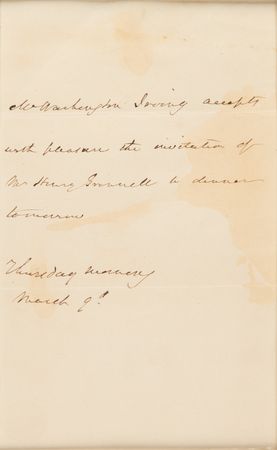 Mr Washington Irving accepts
with pleasure the invitation of
Mr Henry Grinnell to dinner
tomorrow
Thursday morning
March 9th